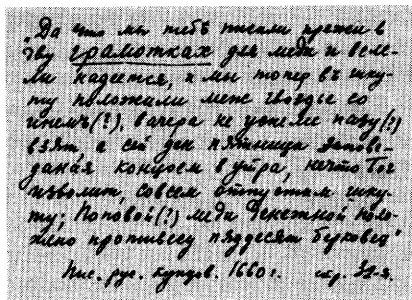 „Да что мы тебѣ писали прежи в
гву грамотках для меди и веле-
ли надеется, и мы топер въ шку-
ту положили меж гвоздье со
инемъ(?), вчера не успели пазу(?)
взят, а сей ден пятница
концоем в утра, нечто Бог
изволит, совсем отпустим шку-
ту; Поповой(?) меди денежной поло-
жено противесу пядесят берковец“
Пис. рус. купцов. 1660 г. стр. 32-я.